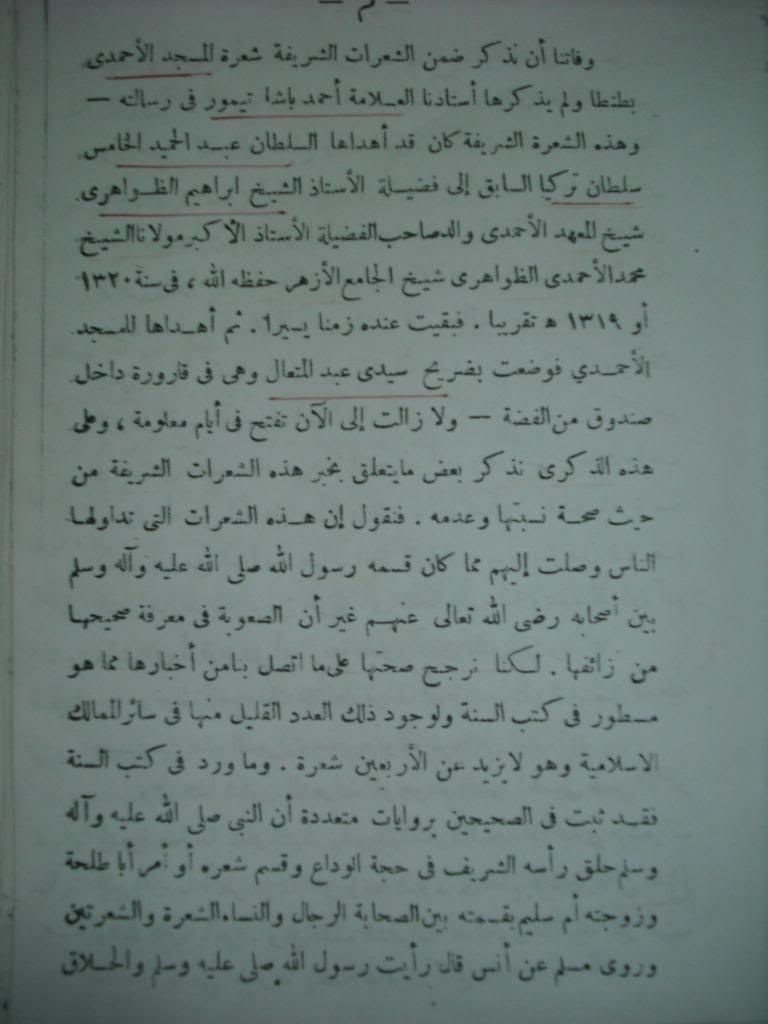 — م —
وفاتنا أن نذكر ضمن الشعرات الشريفة شعرة المسجد الأحمدى
بطنطا ولم يذكرها أستاذنا العلامة أحمد باشا تيمور فى رسالته —
وهذه الشعرة الشريفة كان قد أهداها السلطان عبد الحميد الخامس
سلطان تركيا السابق إلى فضيلة الأستاذ الشيخ ابراهيم الظواهرى
شيخ المعهد الأحمدى والد صاحب الفضيلة الأستاذ الأكبر مولانا الشيخ
محمد الأحمدى الظواهرى شيخ الجامع الأزهر حفظه الله ، فى سنة ١٣٢٠
أو ١٣١٩ ه تقريبا . فبقيت عنده زمنا يسيرا . ثم أهداها للمسجد
الأحمدي فوضعت بضريح سيدى عبد المتعال وهى فى قارورة داخل
صندوق من الفضة — ولا زالت إلى الآن تفتح فى أيام معلومة ، وعلى
هذه الذكرى نذكر بعض ما يتعلق بخبر هذه الشعرات الشريفة من
حيث صحة نسبتها وعدمه . فنقول إن هذه الشعرات التى تداولها
الناس وصلت إليهم مما كان قسمه رسول الله صلى الله عليه وآله وسلم
بين أصحابه رضى الله تعالى عنهم غير أن الصعوبة فى معرفة صحيحها
من زائفها . لكنا نرجح صحتها على ما اتصل بنا من أخبارها مما هو
مسطور فى كتب السنة ولوجود ذلك العدد القليل منها فى سائر الممالك
الاسلامية وهو لا يزيد عن الأربعين شعرة . وما ورد فى كتب السنة
فقد ثبت فى الصحيحين بروايات متعددة أن النبى صلى الله عليه وآله
وسلم حلق رأسه الشريف فى حجة الوداع وقسم شعره أو أمر أبا طلحة
وزوجته أم سليم بقسمته بين الصحابة الرجال والنساء الشعرة والشعرتين
وروى مسلم عن أنس قال رأيت رسول الله صلى عليه وسلم والحلاق